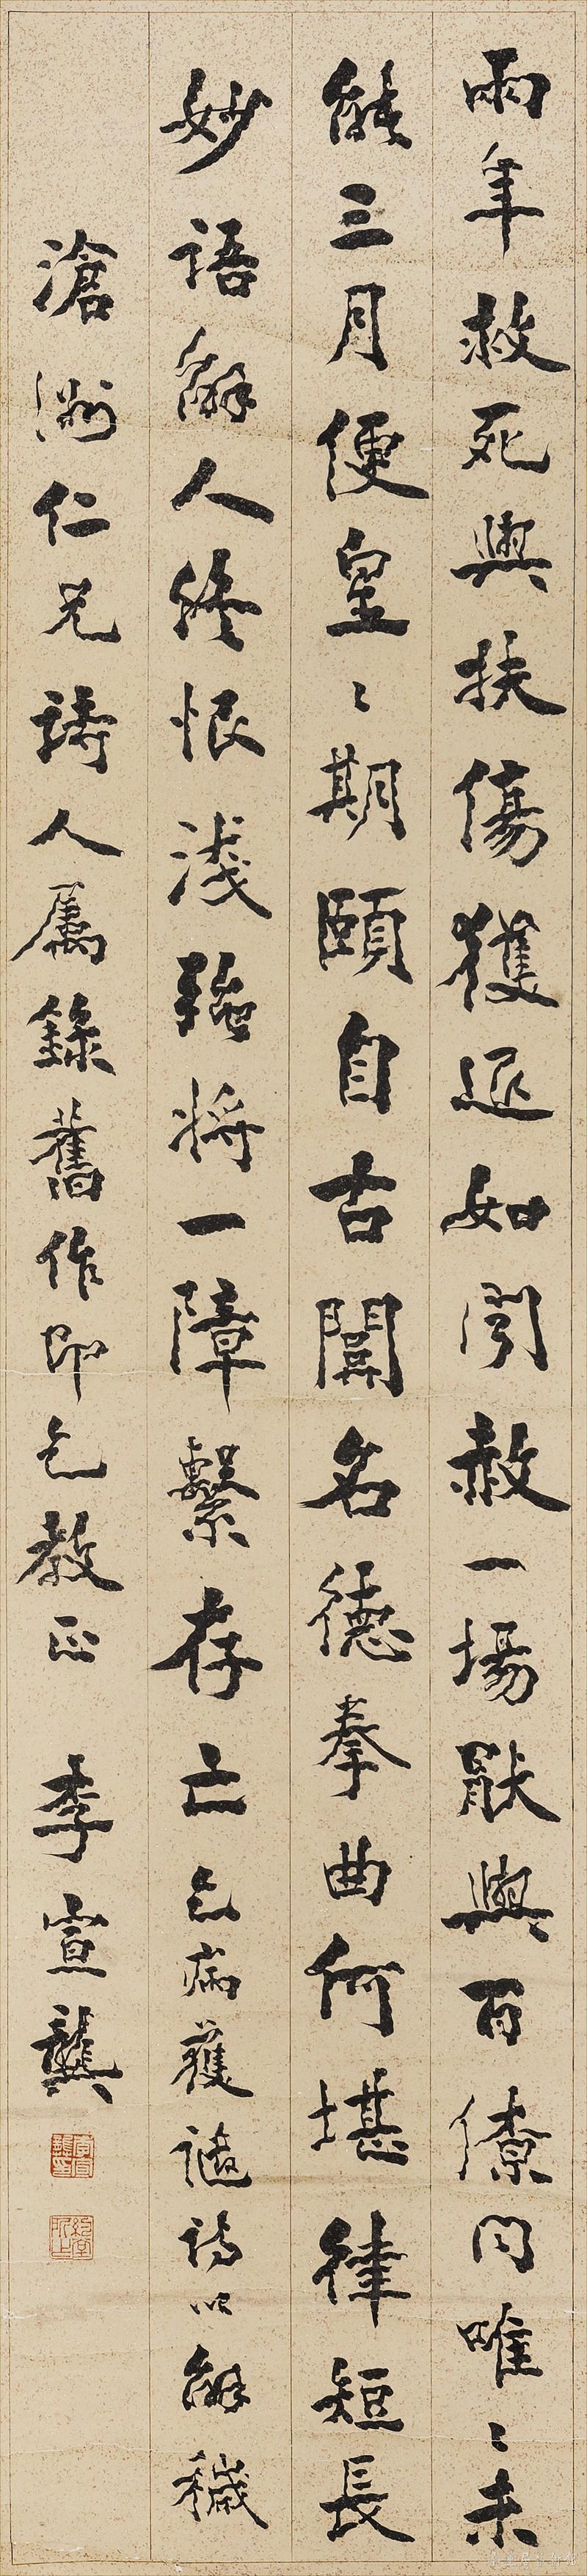 兩年救死與扶傷獲返如聞赦一場猒與百僚同唯〻未
能三月便皇〻期頤自古關名德拳曲何堪律短長
妙語解人終恨淺強將一障繫存亡乞病獲譴詩以解穢
滄洲仁兄詩人屬錄舊作即乞教正 李宣龔